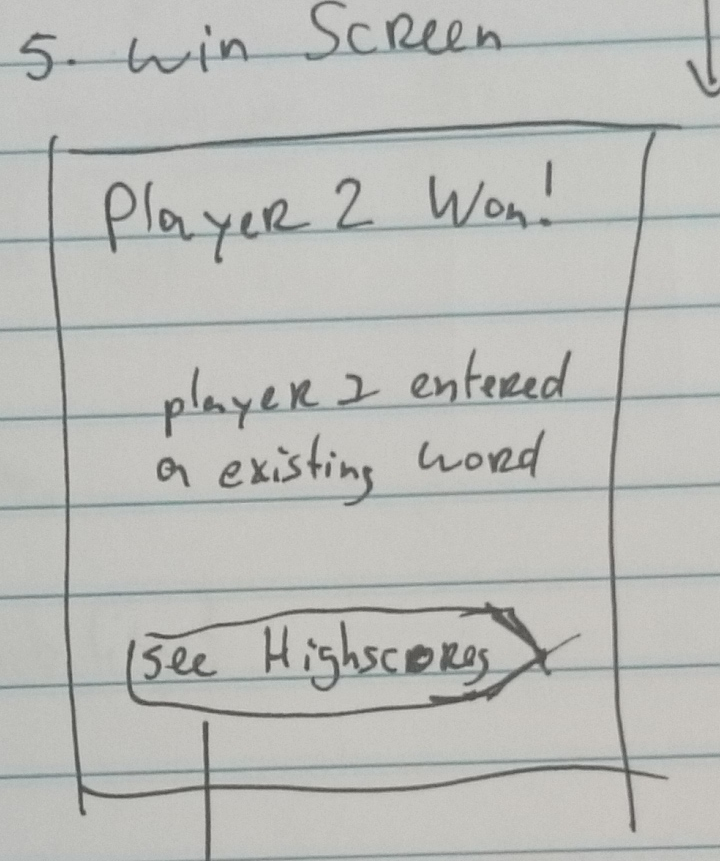 5. Win Screen
Player 2 Won!
player 1 entered
a existing word
See Highscores